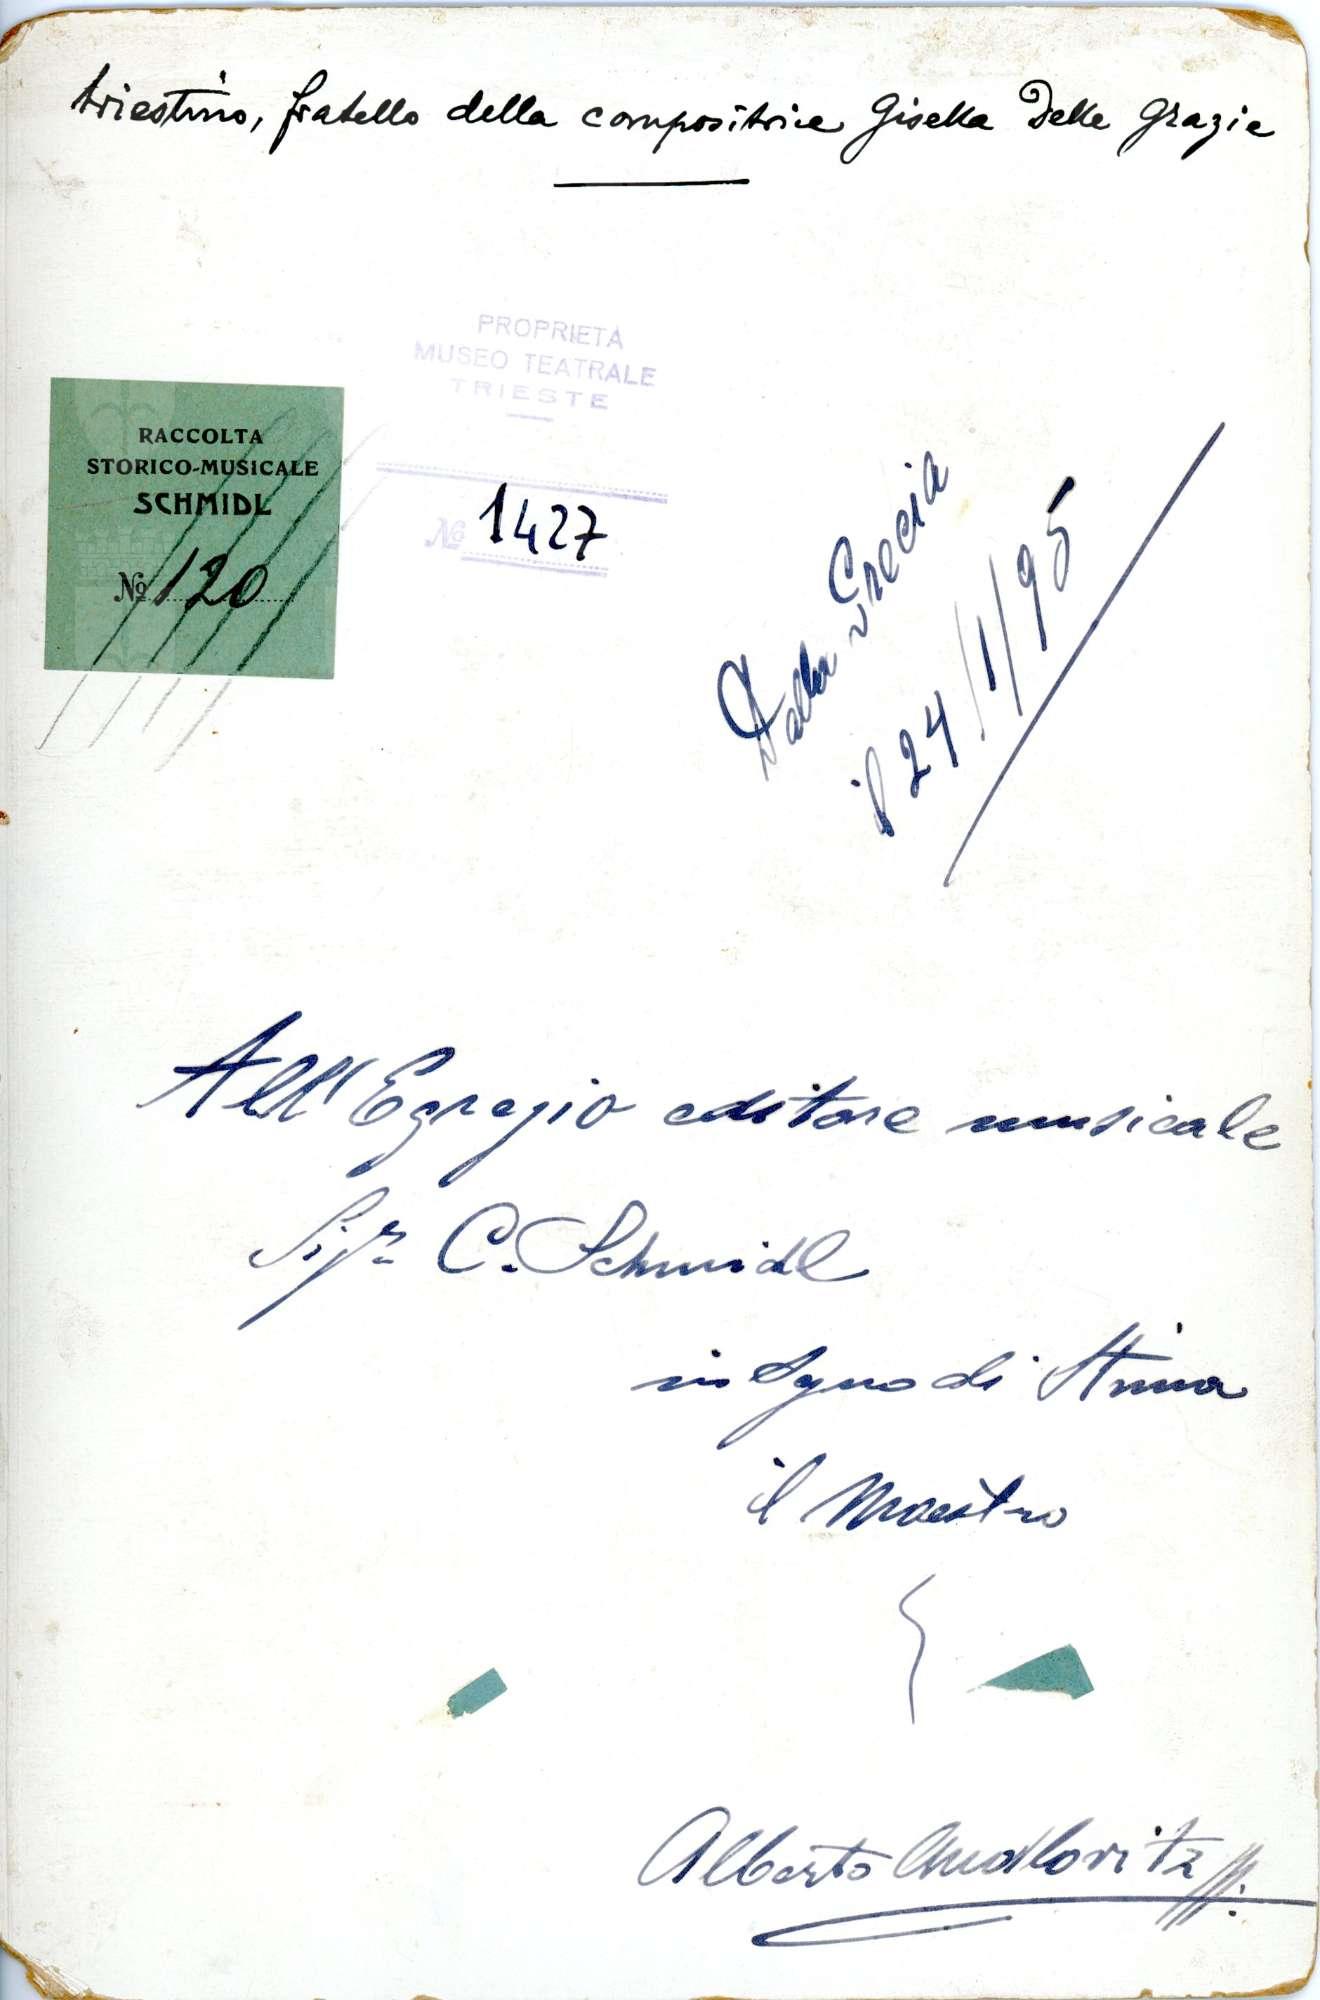 triestino, fratello della compositrice Gisella Delle Grazie
PROPRIETÀ
MUSEO TEATRALE
TRIESTE
№ 1427
RACCOLTA
STORICO-MUSICALE
SCHMIDL
№ 120
Dalla Grecia
il 24/1/95
All'Egregio editore musicale
Sigr. C. Schmidl
in segno di Stima
il Maestro
Alberto